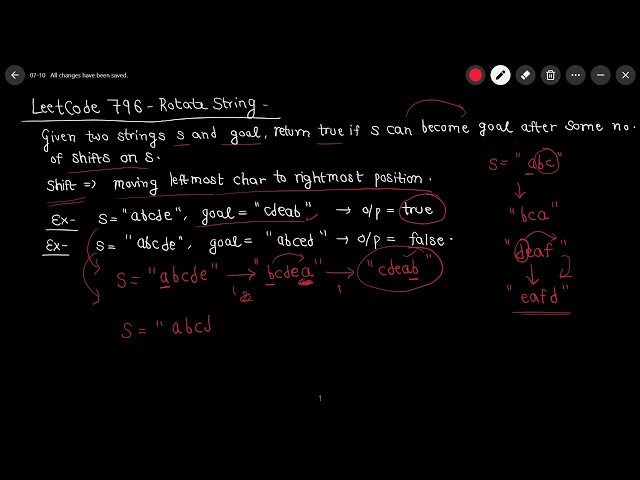 07-10 All changes have been saved.
LeetCode 796 - Rotate String -
Given two strings s and goal, return true if s can become goal after some no.
of shifts on s.
Shift => moving leftmost char to rightmost position.
Ex- S="abcde", goal = "cdeab" → o/p = true
Ex- S="abcde", goal = "abced" → o/p = false.
S = "abcde" → "bcdea" → "cdeab"
1 1
S = "abcd
S = "abc"
↓
"bca"
"deaf"
↓
"eafd"
1